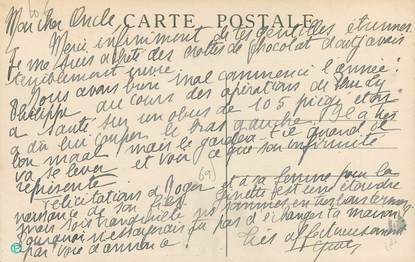 Mon cher Oncle
CARTE POSTALE
Merci infiniment de tes gentilles étrennes
Je me suis acheté des crottes de chocolat dont j'avais
terriblement envie.
Nous avons bien mal commencé l'année !
Philippe au cours des opérations de
a sauté sur un obus de 105 piégé et on
a dû lui couper le bras gauche. Il a
bon moral mais le gardera t'il quand il
va se lever et voir ce que son infirmité
représente
Félicitations à Roger et à sa femme pour la
naissance de son
mais soit tranquille nous sommes en
Pourquoi n'essaierais tu pas d'échanger ta maison
par voie d'annonce ?